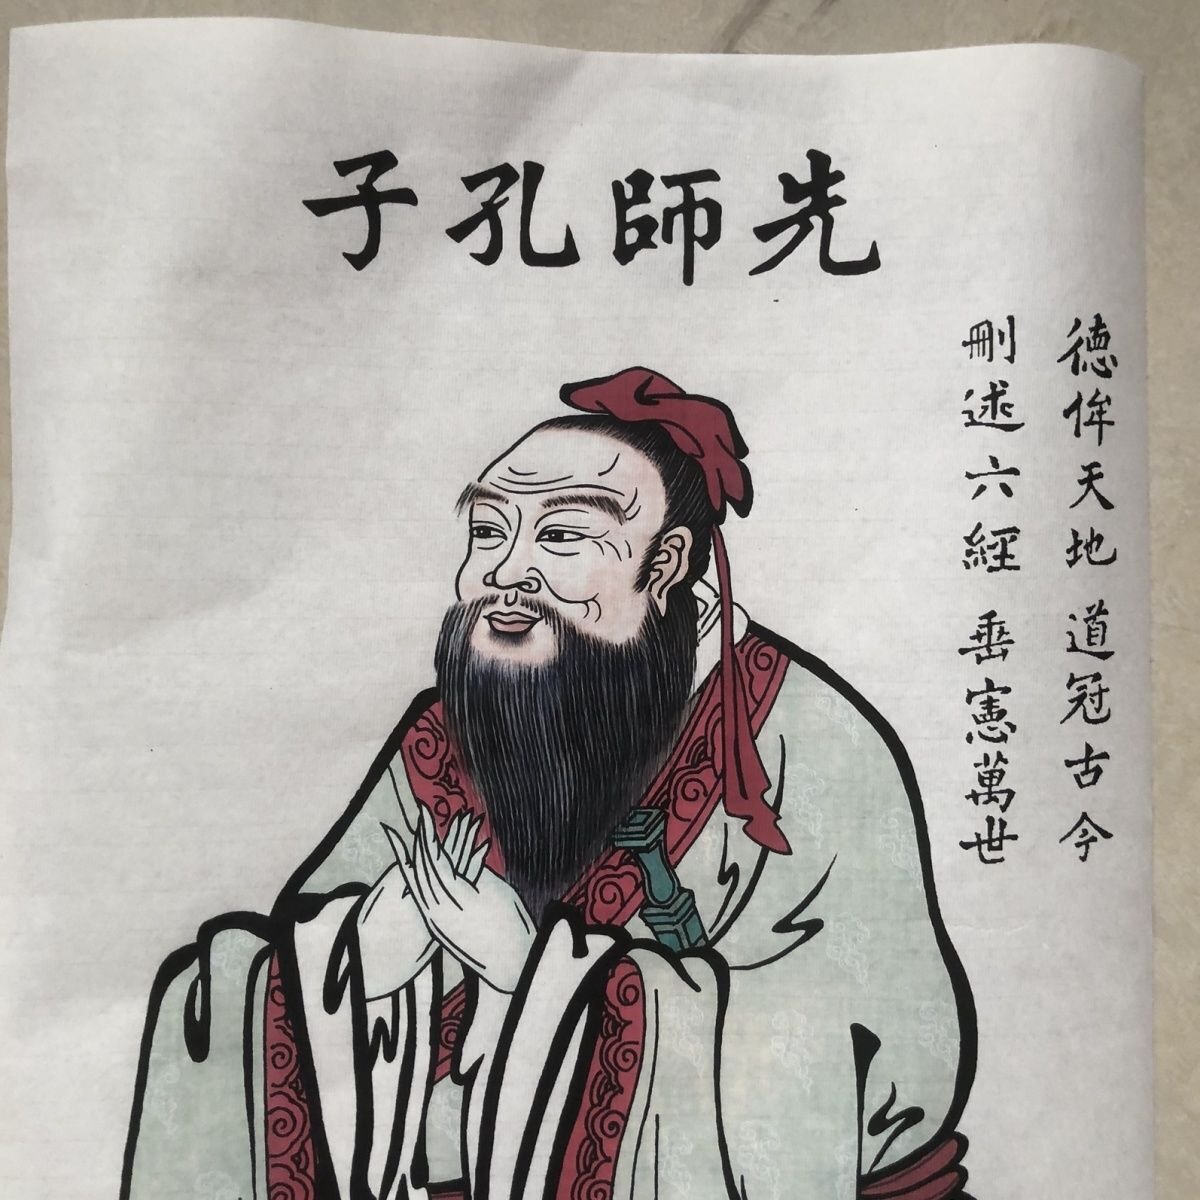 先師孔子
德侔天地道冠古今
刪述六經垂憲萬世